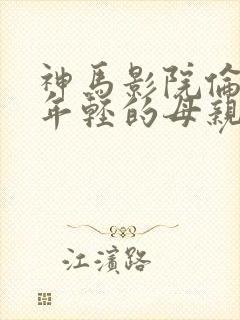 神馬影院倫
年輕的母親
江濱路